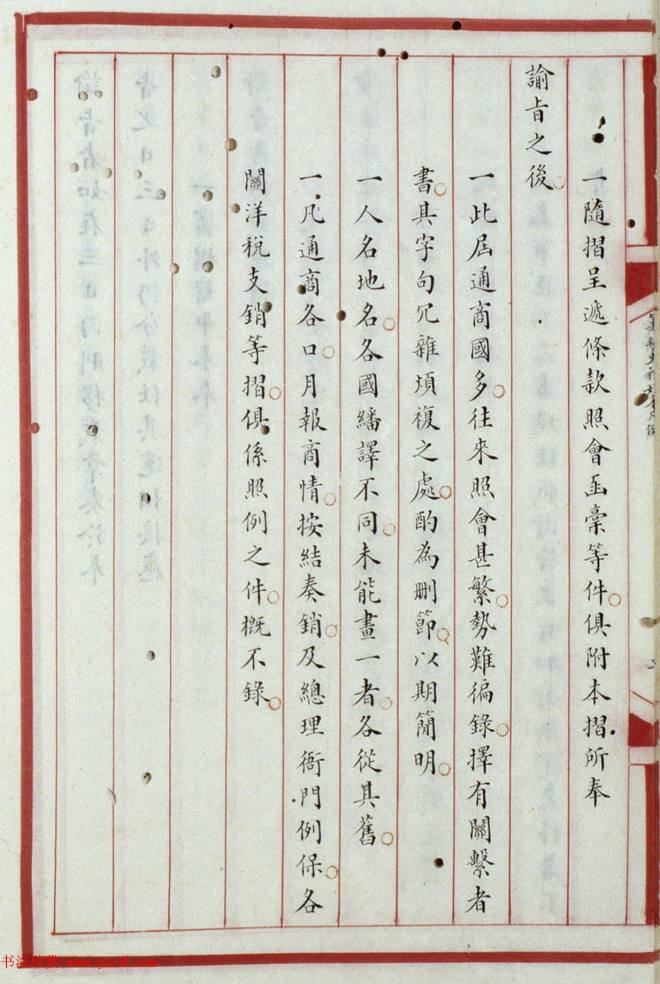 一隨摺呈遞條款照會函稾等件俱附本摺所奉
諭旨之後
一此屆通商國多往來照會甚繁勢難徧錄擇有關繫者
書其字句冗雜煩複之處酌為刪節以期簡明
一人名地名各國繙譯不同未能畫一者各從其舊
一凡通商各口月報商情按結奏銷及總理衙門例保各
關洋稅支銷等摺俱係照例之件概不錄